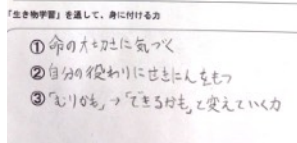 「生き物学習」を通して、身に付ける力
①命の大切さに気づく
②自分の役わりにせきにんをもつ
③「むりかも」→「できるかも」と変えていく力